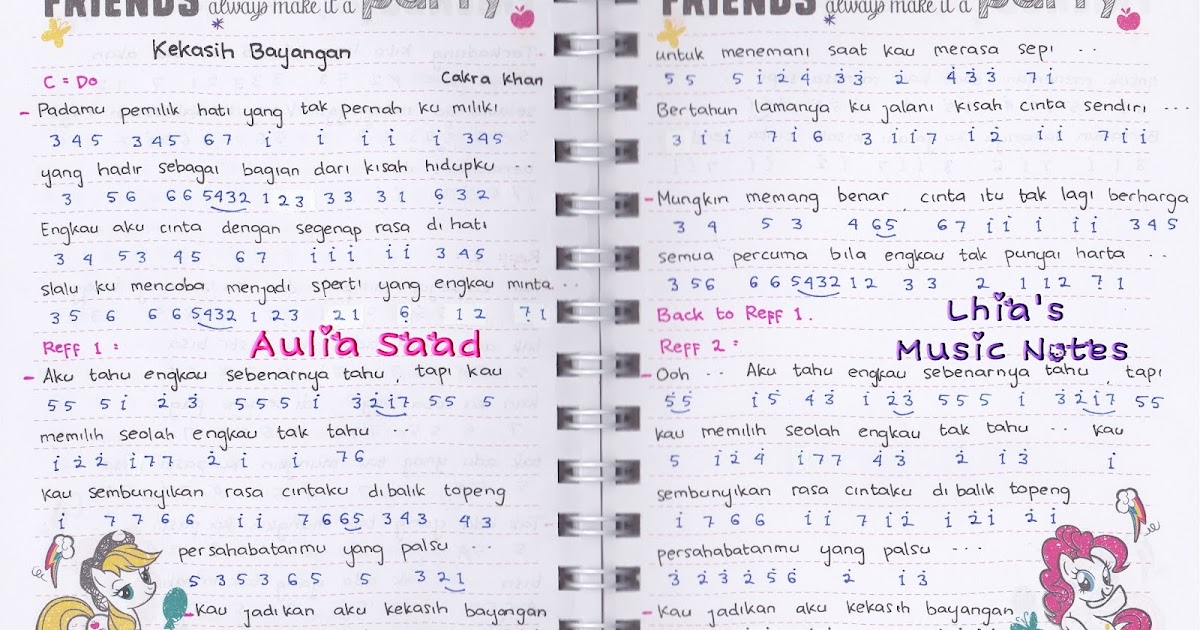 FRIENDS always make it a party
Kekasih Bayangan
C = Do
Cakra Khan
- Padamu pemilik hati yang tak pernah ku miliki
3 4 5 3 4 5 6 7 i i i i i 3 4 5
yang hadir sebagai bagian dari kisah hidupku ...
3 5 6 6 6 5432 1 2 3 3 3 3 1 6 3 2
Engkau aku cinta dengan segenap rasa di hati
3 4 5 3 4 5 6 7 i i i i i 3 4 5
slalu ku mencoba menjadi sperti yang engkau minta ...
3 5 6 6 6 5432 1 2 3 2 1 6 1 2 7 1
Reff 1 :
Aulia Saad
- Aku tahu engkau sebenarnya tahu , tapi kau
5 5 5 i 2 3 5 5 5 i 3 2 i 7 5 5 5
memilih seolah engkau tak tahu ...
i 2 2 i 7 7 2 i i 7 6
kau sembunyikan rasa cintaku dibalik topeng
i 7 7 6 6 i i 7 6 65 3 4 3 4 3
persahabatanmu yang palsu ...
5 3 5 3 6 5 5 3 21
- Kau jadikan aku kekasih bayangan
FRIENDS always make it a party
untuk menemani saat kau merasa sepi ..
5 5 5 i 2 4 3 3 2 4 3 3 7 i
Bertahun lamanya ku jalani kisah cinta sendiri ...
3 i i 7 i 6 3 i i 7 i 2 i i 7 i i
- Mungkin memang benar , cinta itu tak lagi berharga
3 4 5 3 4 65 6 7 i i i i i 3 4 5
semua percuma bila engkau tak punyai harta ..
3 5 6 6 6 5432 1 2 3 3 2 1 1 2 7 1
Back to Reff 1.
Lhia's
Reff 2 :
Music Notes
- Ooh .. Aku tahu engkau sebenarnya tahu , tapi
55 i 5 4 3 i 23 5 5 5 i 3 2 i 7 5 5
kau memilih seolah engkau tak tahu .. kau
5 i 2 4 i 7 7 4 3 2 i 3 i
sembunyikan rasa cintaku di balik topeng
i 7 6 6 i i 7 i 2 i 2 i 2 i
persahabatanmu yang palsu ...
3 2 3 2 5 6 2 i 3
- Kau jadikan aku kekasih bayangan